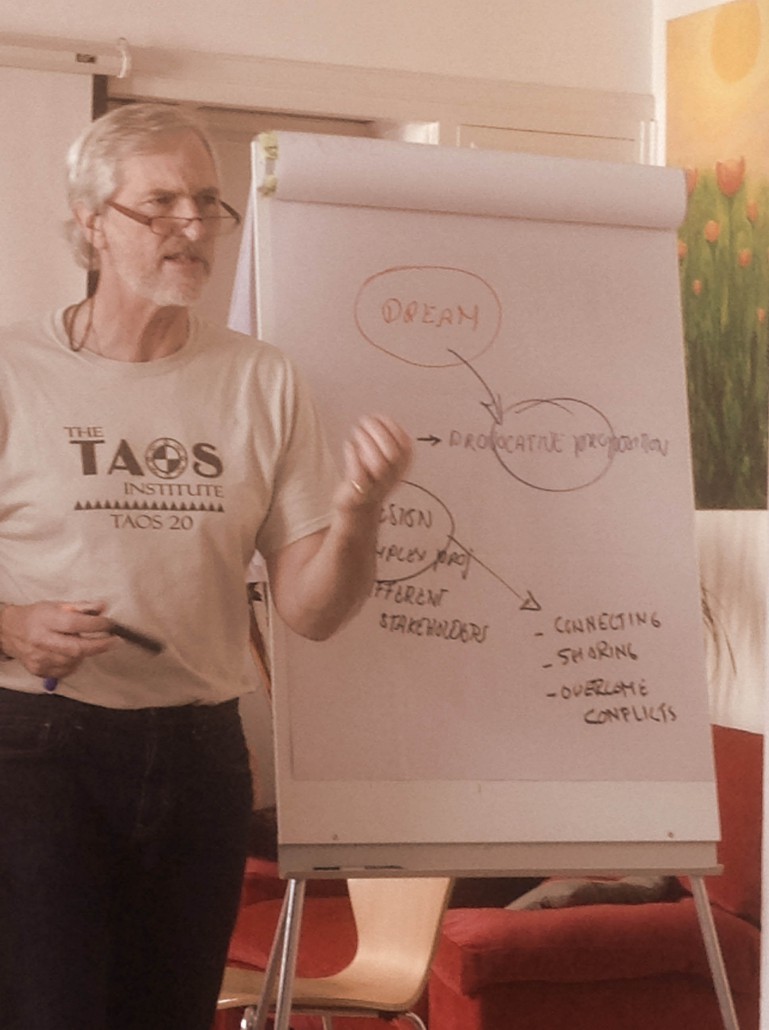 THE
TAOS
INSTITUTE
TAOS 20
DREAM
→ PROVOCATIVE PROPOSITION
ESIGN
MPLEX PROJ
FFERENT
STAKEHOLDERS
- CONNECTING
- SHARING
- OVERCOME
CONFLICTS